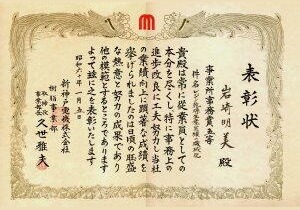 表彰状
事業所事務賞五等
岩崎明美殿
貴殿は常に従業員としての
本分を尽くし特に事務上の
進歩改良に工夫努力し当社
の業績向上に顕著な成績を
挙げられましたのは日頃の旺盛
な熱意と努力の成果であり
他の模範とするところであります
よって茲に之を表彰いたします
昭和六十一年一月五日
新神戸電機株式会社
樹脂事業部
取締役事業部長 久世雅夫